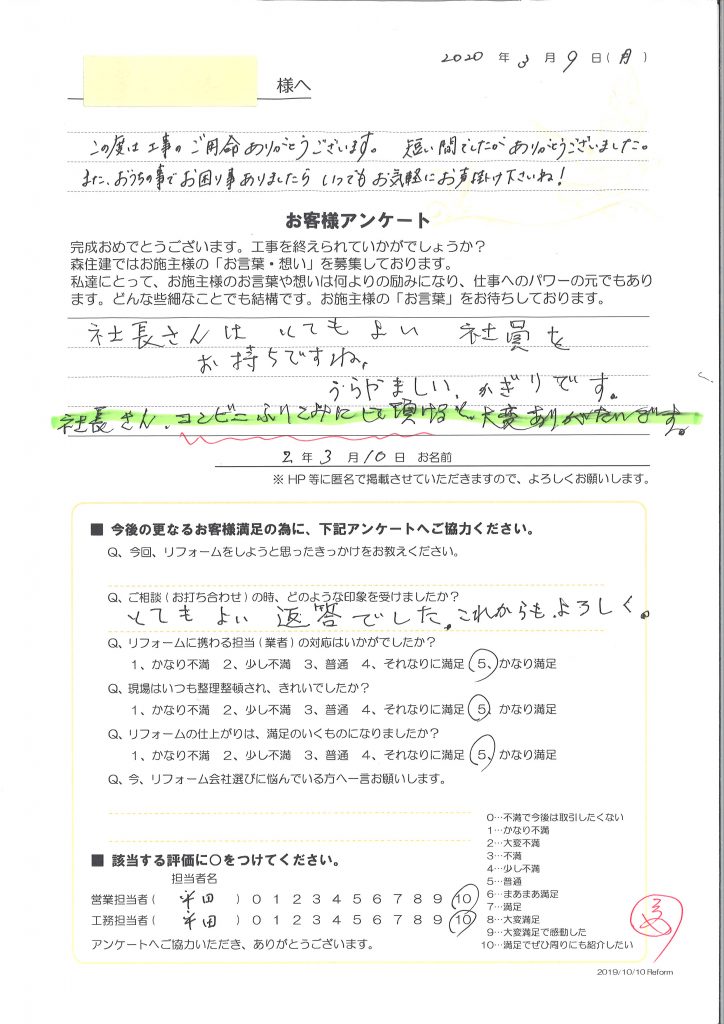 2020 年 3 月 9 日(月)
様へ
この度は工事のご用命ありがとうございます。 短い間でしたがありがとうございました。
また、おうちの事でお困り事ありましたら いつでもお気軽にお声掛け下さいね!
お客様アンケート
完成おめでとうございます。工事を終えられていかがでしょうか?
森住建ではお施主様の「お言葉・想い」を募集しております。
私達にとって、お施主様のお言葉や想いは何よりの励みになり、仕事へのパワーの元でもあり
ます。どんな些細なことでも結構です。お施主様の「お言葉」をお待ちしております。
社長さんは とてもよい 社員を
お持ちですね。
うらやましい、かぎりです。
社長さん、コンビニふりこみにして頂けると、大変ありがたいです。
2 年 3 月 10 日 お名前
※HP等に匿名で掲載させていただきますので、よろしくお願いします。
■ 今後の更なるお客様満足の為に、下記アンケートへご協力ください。
Q、今回、リフォームをしようと思ったきっかけをお教えください。
Q、ご相談(お打ち合わせ)の時、どのような印象を受けましたか?
とてもよい 返答でした。これからも、よろしく。
Q、リフォームに携わる担当(業者)の対応はいかがでしたか?
1、かなり不満 2、少し不満 3、普通 4、それなりに満足 5、かなり満足
Q、現場はいつも整理整頓され、きれいでしたか?
1、かなり不満 2、少し不満 3、普通 4、それなりに満足 5、かなり満足
Q、リフォームの仕上がりは、満足のいくものになりましたか?
1、かなり不満 2、少し不満 3、普通 4、それなりに満足 5、かなり満足
Q、今、リフォーム会社選びに悩んでいる方へ一言お願いします。
■ 該当する評価に○をつけてください。
担当者名
営業担当者( 平田 )0 1 2 3 4 5 6 7 8 9 10
工務担当者( 平田 )0 1 2 3 4 5 6 7 8 9 10
アンケートへご協力いただき、ありがとうございます。
0…不満で今後は取引したくない
1…かなり不満
2…大変不満
3…不満
4…少し不満
5…普通
6…まあまあ満足
7…満足
8…大変満足
9…大変満足で感動した
10…満足でぜひ周りにも紹介したい
2019/10/10 Reform